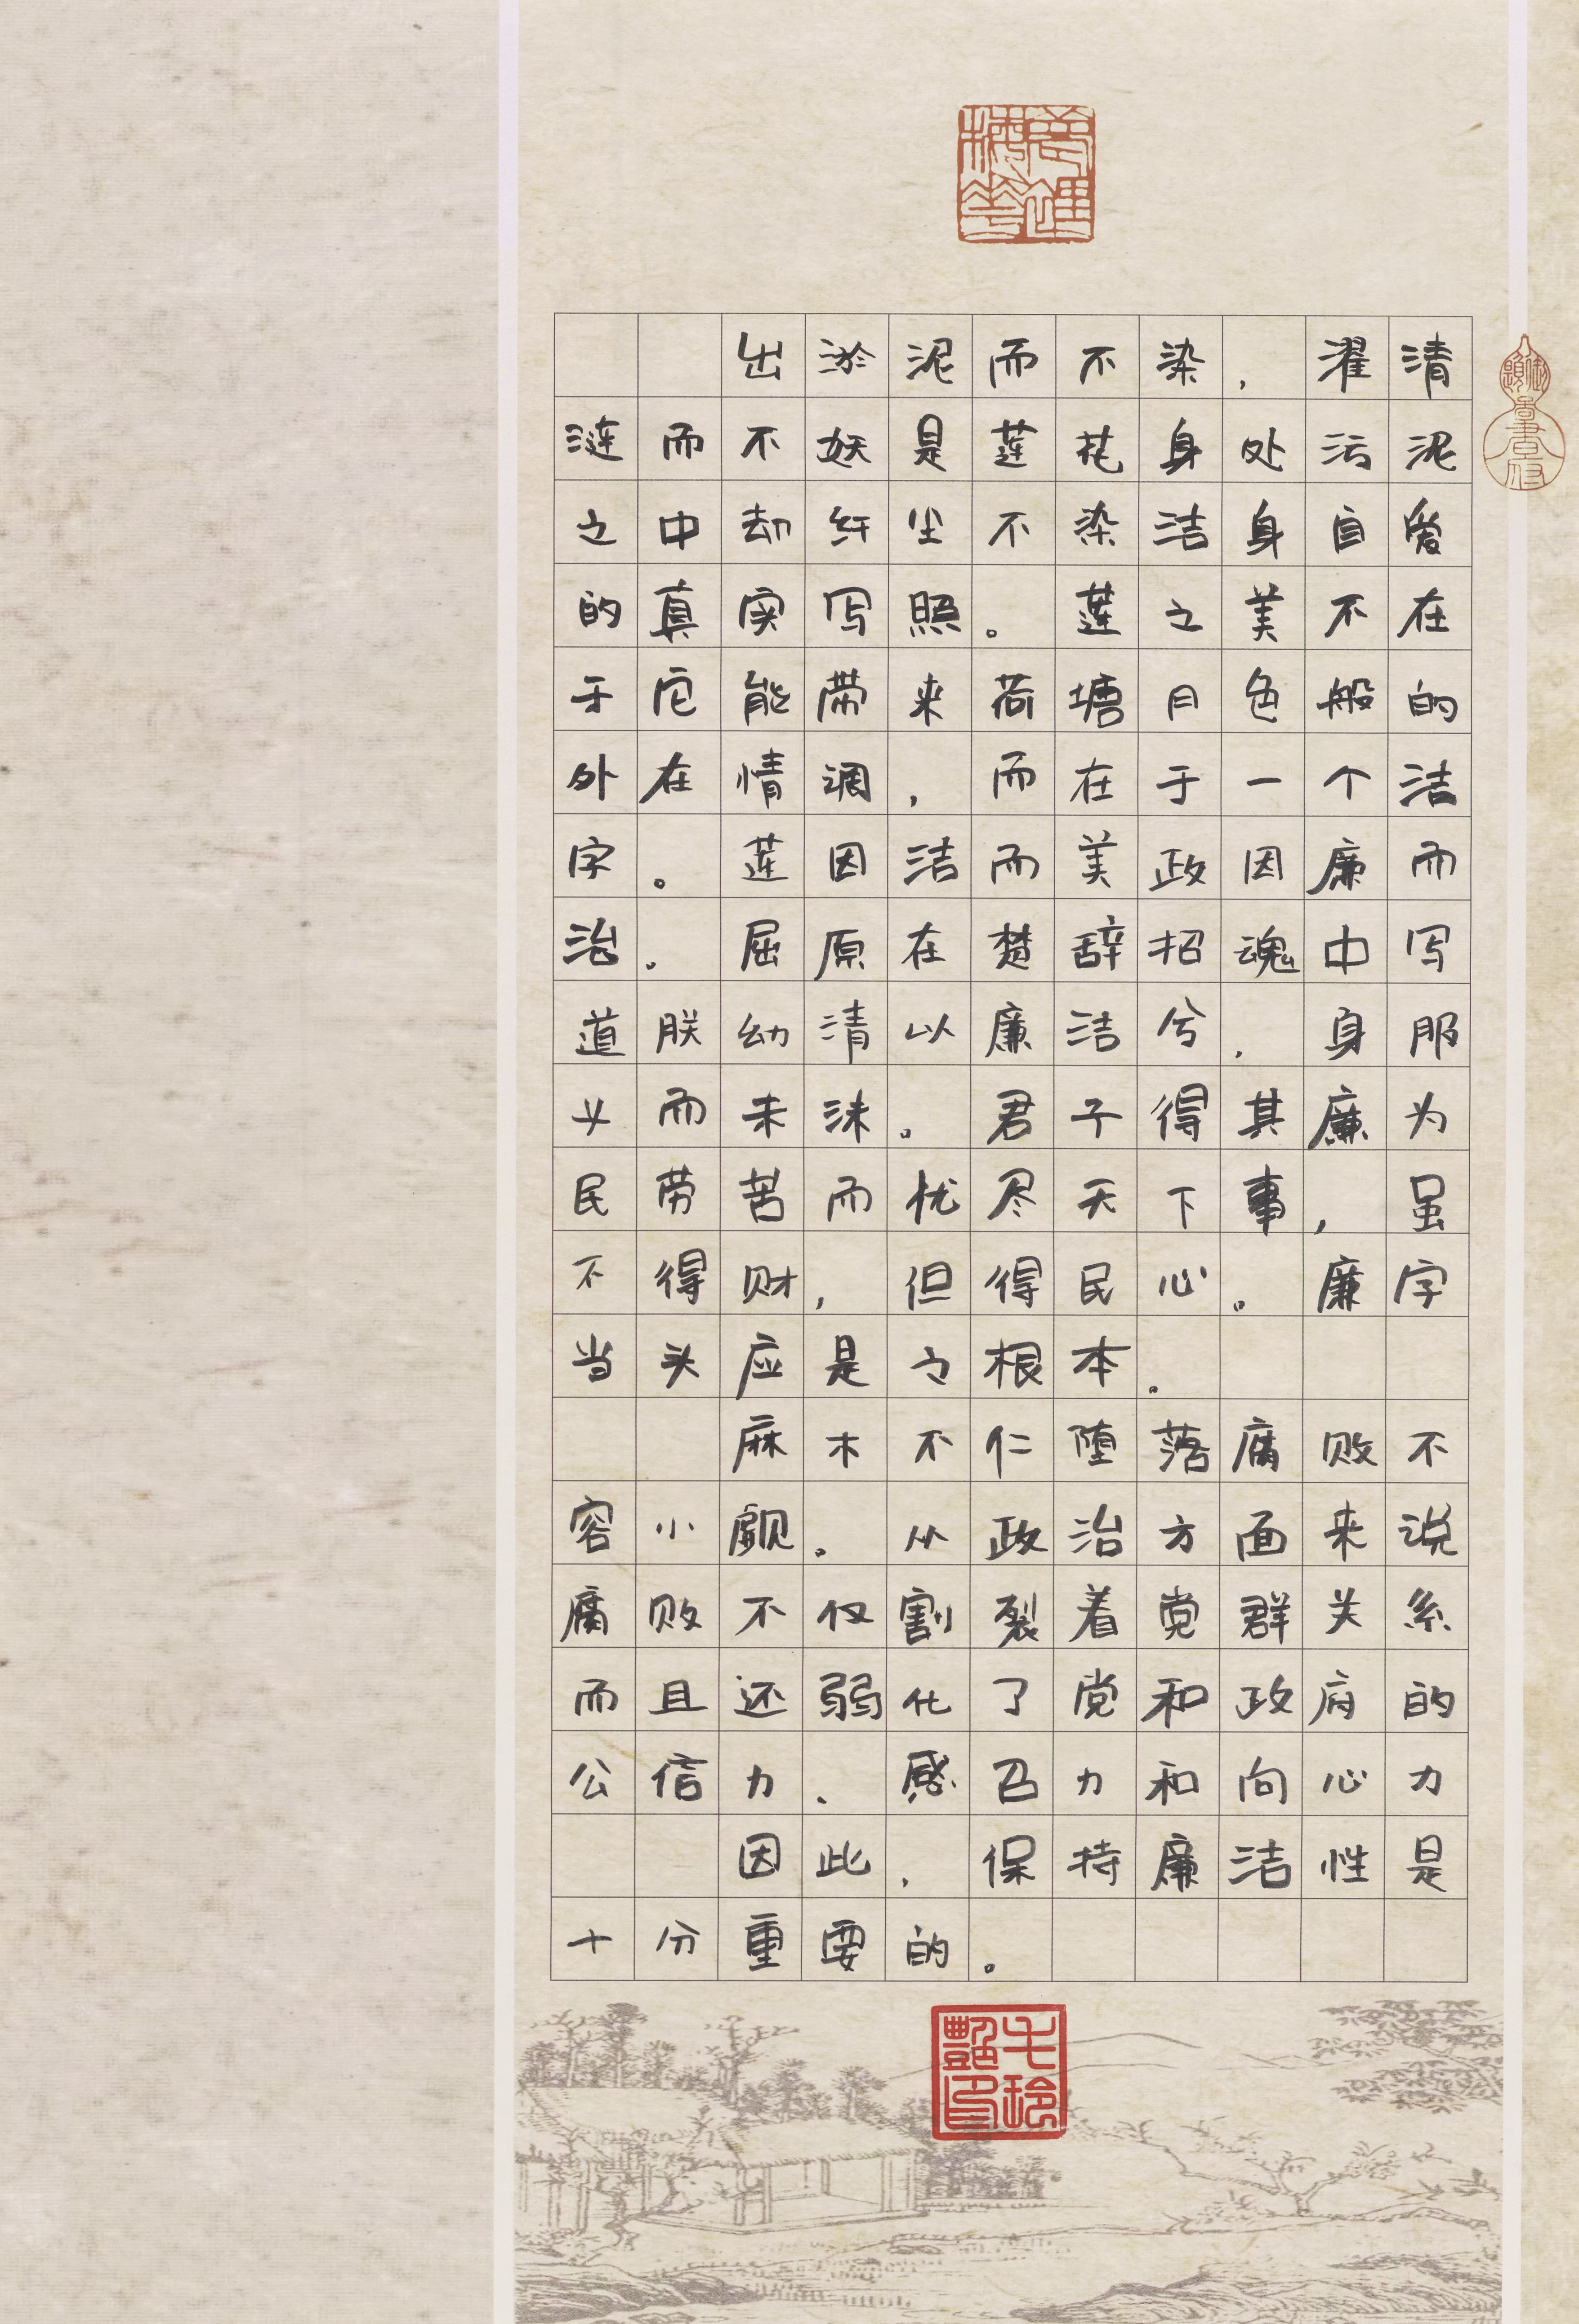 出淤泥而不染，濯清
涟而不妖是莲花身处污泥
之中却纤尘不染洁身自爱
的真实写照。莲之美不在
于它能带来荷塘月色般的
外在情调，而在于一个洁
字。莲因洁而美政因廉而
治。屈原在楚辞招魂中写
道朕幼清以廉洁兮，身服
义而未沫。君子得其廉为
民劳苦而忧尽天下事，虽
不得财，但得民心。廉字
当头应是之根本。
麻木不仁堕落腐败不
容小觑。从政治方面来说
腐败不仅割裂着党群关系
而且还弱化了党和政府的
公信力、感召力和向心力
因此，保持廉洁性是
十分重要的。
毛玲艷印